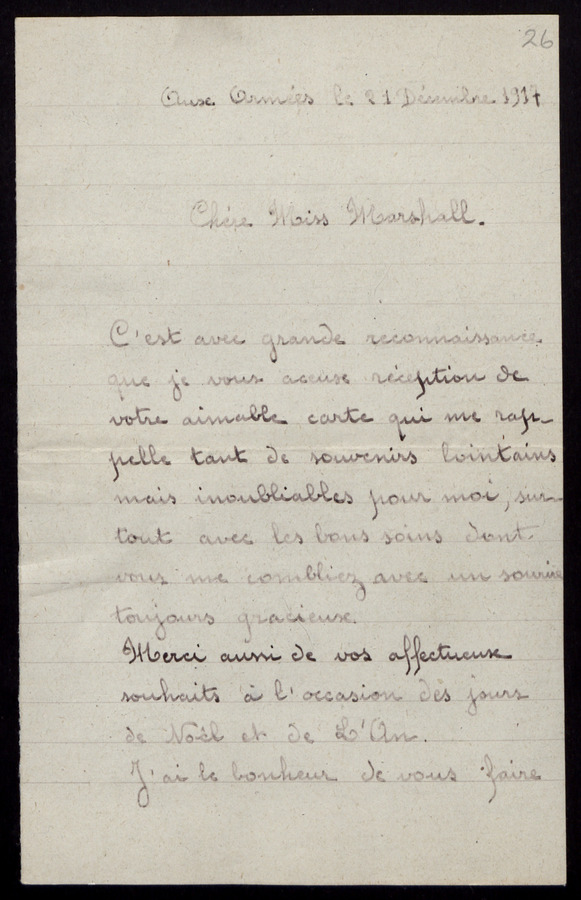 26
Aux Armées le 21 Décembre 1917
Chère Miss Marshall.
C'est avec grande reconnaissance
que je vous accuse réception de
votre aimable carte qui me rap-
pelle tant de souvenirs lointains
mais inoubliables pour moi, sur-
tout avec les bons soins dont
vous me combliez avec un sourire
toujours gracieux.
Merci aussi de vos affectueux
souhaits à l'occasion des jours
de Noël et de L'An.
J'ai le bonheur de vous faire